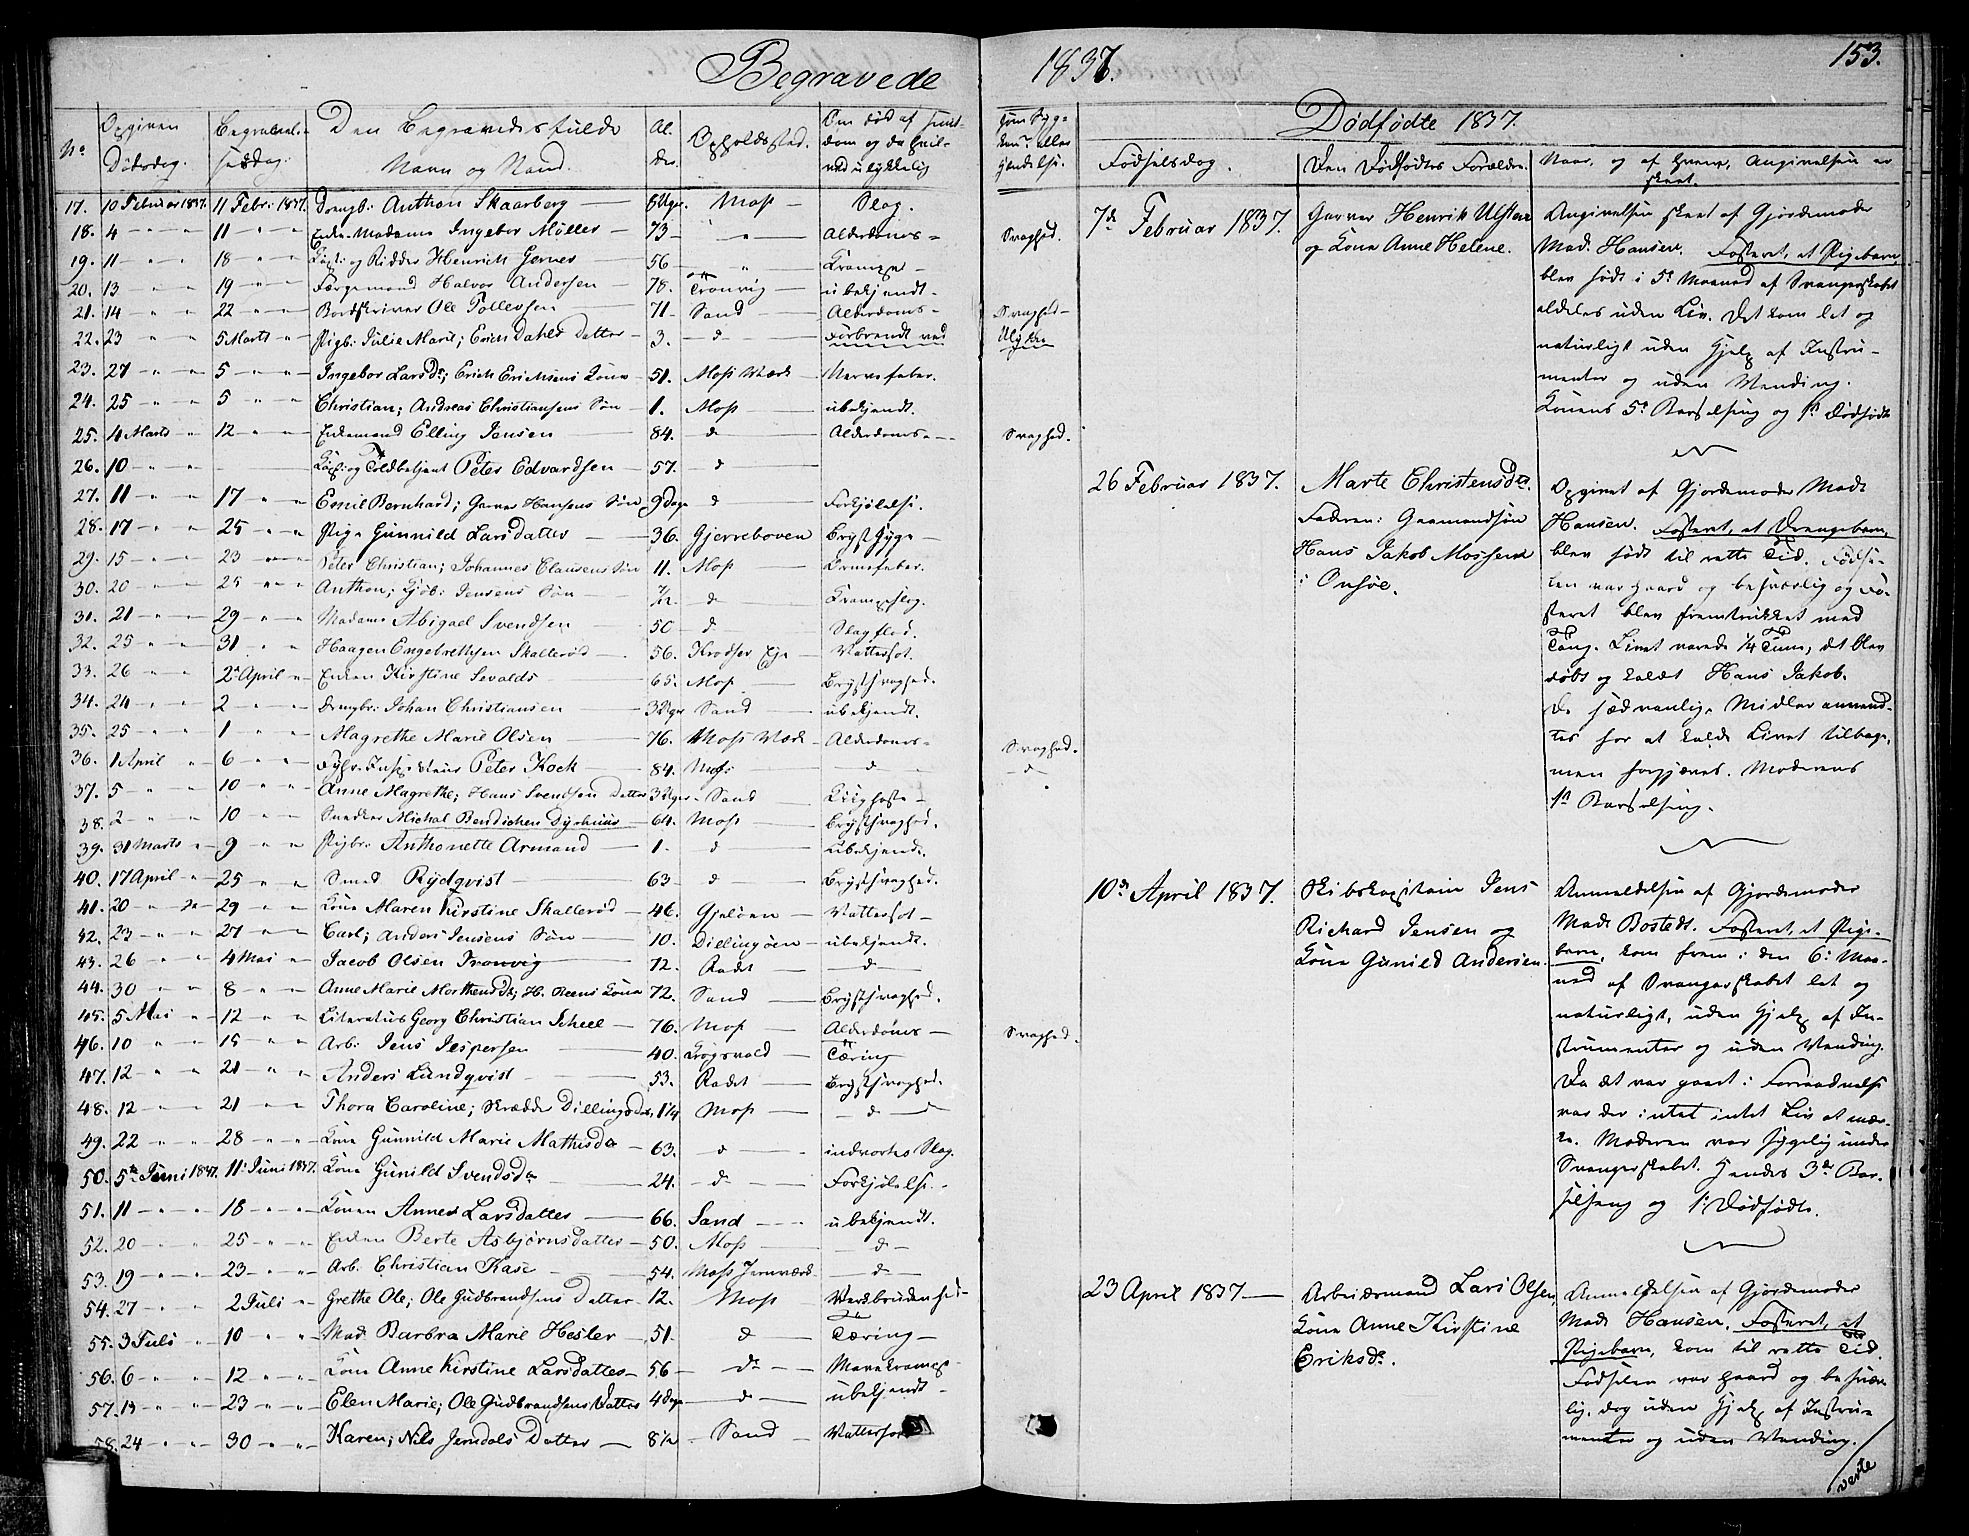 Begravede 1837. 153.
No Opgiven Dødsdag. Begravelsesdag. Den Begravedes fulde Navn og Stand. Alder. Opholdssted.
17. 10 Februar 1837. 11 Febr: 1837. Drengb: Anthon Skaarberg — 6 Uger. Moss — Slag.
18. 4 — " — " 11 — " — " Enke-Madame Ingebor Møller — 73 — " — Alderdoms- Svaghed.
19. 11 — " — " 18 — " — " Kjøb: og Ridder Henrich Gerner — 56 — " — Krampe —
20. 13 " " 19 — " — Færgemand Halvor Andersen — 78. Tronvig — ubekjendt —
21. 14 — " — " 22 — " — " Bordskriver Ole Tollevsen — 71 — Sand — Alderdoms- Svaghed —
22. 23 " " 5 Marts " Pigb: Julie Marie; Erich Dahls Datter — 3. — d — Forbrændt ved Ulykke
23. 27 — " — " 5 — " — " Ingebor Larsdr; Erich Erichsens Kone — 51. Moss Værk — Nervefeber.
24. 25 — " — " 5 — " — " Christian; Andreas Christiansens Søn — 1. Moss — ubekjendt.
25. 4 Marts " 12 — " — " Enkemand Elling Jensen — 84. — d — Alderdoms- Svaghed.
26. 10 — " — " — Kjøb: og Toldbetjent Peter Edvardsen — 57. — d
27. 11 — " — " 17 — " — " Emil Bernhard; Garver Hansens Søn 9 Dage d Forkjølelse.
28. 17 — " — " 25 — " — " Pige Gunnild Larsdatter — 36. Gjerreboven Brystsyge —
29. 15 — " — " 23 Peter Christian; Johannes Clausens Søn 11. Moss — Ormefeber.
30. 20 25 — " Anthon; Gjøb: Jensens Søn — d — Krampeslag.
31. 21 " " 29 — " — " Madame Abigael Svendsen — 50 — d — Slagflod.
32. 25 — " — " 31 " " Haagen Engebrethsen Skallerød — 56. Krodser Eje Vattersot.
33. 26 " " 2 April " Enken Kirstine Sevalds — 65. Moss — Brystsvaghed.
34. 24 2 Drengb: Johan Christiansen — 3 Uger Sand — ubekjendt.
35. 25 — " 1 — " Magrethe Marie Olsen — 76. Moss Værk — Alderdoms- Svaghed.
36. 1 April " 6 — " — Peter Kock — 84. Moss — d — d
37. 5 — " — 10 — " — Anne Magrethe; Hans Svendsens Datter 3 Uger — Sand — Kighoste —
38. 2 — " — 10 — " — Snedker Michal Bendichsen Dyrhuus — 64. Moss — Brystsvaghed.
39. 31 Marts " 9 — " — Pigb: Anthonette Armand — 1. — d — Ubekjendt.
40. 17 April " 25 — " — " Smed Rydqvist — 63 — d — Brystsvaghed.
41. 20 — " 29 — " — " Kone Maren Kirstine Skallerød — 46. Gjeløen — Vattersot —
42. 23 — " — " 27 — " — " Carl; Anders Jensens Søn — 10. Dillingøen — ubekjendt.
43. 26 — " — " 4 Mai " Jacob Olsen Tronvig — 72. Radet — d —
44. 30 " " 8 — " — " Anne Marie Morthensdr; H. Reens Kone 72. Sand — Brystsvaghed.
45. 5 Mai " 12 — " — " Literatus Georg Christian Scheel — 76. Moss — Alderdoms — Svaghed.
46. 10 " " 15 — " — " Arb: Jens Jespersen — 40. Krogsvold — Tæring
47. 12 — " — " 21 — " Anders Lundqvist — 53. Radet — Brystsvaghed.
48. 12 — " — " 21 — " — " Thora Caroline; Skrædder Dillings Dr. 1¼ Moss — d —
49. 22 — " — " 28 — " — " Kone Gunnild Marie Mathisdr — 63. — d — indvortes Slag.
50. 5te Juni 1837. 11 Juni 1837. Kone Gunild Svendsdr — 24. — d — Forkjølelse. —
51. 11 — " — " 18 — " — " Konen Anne Larsdatter — 66. Sand — ubekjendt.
52. 20 — " — " 25 — " — " Enken Berte Asbjørnsdatter — 50. Moss — d —
53. 19 — " — " 23 — " — " Arb. Christian Kase — 54. Moss Jernværk — d —
54. 27 " " 2 Juli " Grethe Ole; Ole Gudbrandsens Datter — 12. Moss — Værkbrudenhed —
55. 3 Juli " 10 — " — " Mad: Barbra Marie Hesler — 51 — d — Tæring —
56. 6 — " — " 12 " " Kone Anne Kirstine Larsdatter — 56 — d — Mavekrampe —
57. 13 — " — " 23 — " — " Elen Marie; Ole Gudbrandsens Datter 4 Dage — d — ubekjendt —
58. 24 — " — " 30 — " — " Karen; Nils Jerndals Datter — 8½ Sand — Vattersot
Dødfødte 1837.
Fødselsdag. Den Dødfødtes Forældre. Naar, og af hvem, Angivelsen er skeet.
7de Februar 1837. Garver Henrik Ulsten og Kone Anne Helene.
Angivelsen skeet af Gjordemoder
Mad. Hansen. Fosteret, et Pigebarn,
blev født i 5te Maaned af Svangerskabet
aldeles uden Liv. Det kom let og
naturligt uden Hjelp af Instru-
menter og uden Vending.
Konens 5te Barselseng og 1ste Dødfødte
26 Februar 1837. Marte Christensdr.
Faderen: Gaardmandssøn
Hans Jakob Mossen
i Onsøe.
Opgivet af Gjordemoder Mad
Hansen. Fosteret, et Drengebarn,
blev født til rette Tid. Fødse-
len var haard og besværlig og Fo-
steret blev fremtrukket med
Tang. Livet varede ¼ Time, det blev
døbt og kaldt Hans Jakob.
De sædvanlige Midler anvend-
tes for at kalde Livet tilbage,
men forgjæves. Moderens
1ste Barselseng.
10de April 1837. Skibskapitain Jens
Richard Jensen og
Kone Gunild Andersen.
Anmeldelsen af Gjordemoder
Mad Bostedt. Fosteret, et Pige-
barn, kom frem i den 6te Maa-
ned af Svangerskabet let og
naturligt, uden Hjelp af In-
strumenter og uden Vending.
Da det var gaaet i Forraadnelse
var der intet intet Liv at mær-
ke. Moderen var sygelig under
Svangerskabet. Hendes 3de Bar-
selseng og 1ste Dødfødte.
23 April 1837 — Arbeidsmand Lars Olsen,
Kone Anne Kirstine
Eriksdr.
Anmeldelsen af Gjordemoder
Mad Hansen. Fosteret, et
Pigebarn, kom til rette Tid.
Fødselen var haard og besvær-
lig, dog uden Hjelp af Instru-
menter og uden Vending.
verte